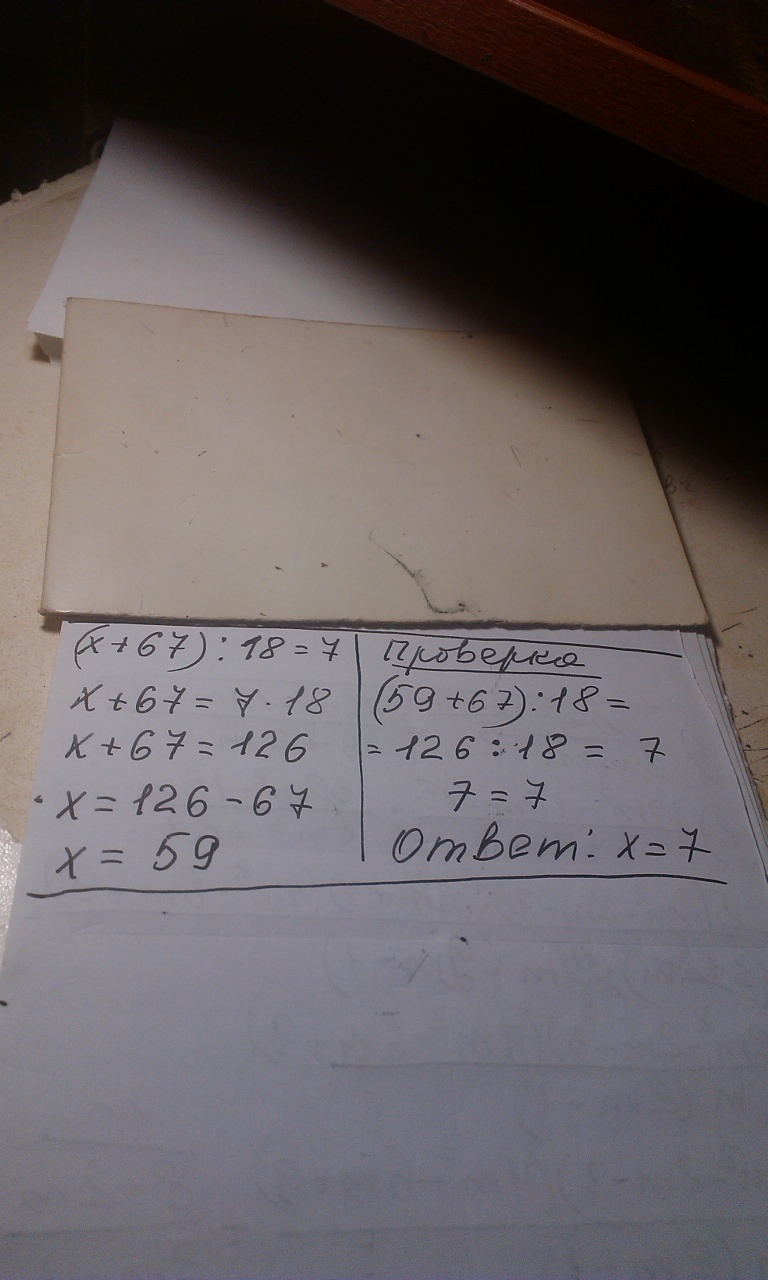 (x+67):18=7
x+67=7·18
x+67=126
x=126-67
x=59
Проверка
(59+67):18=
=126:18=7
7=7
Ответ: x=7